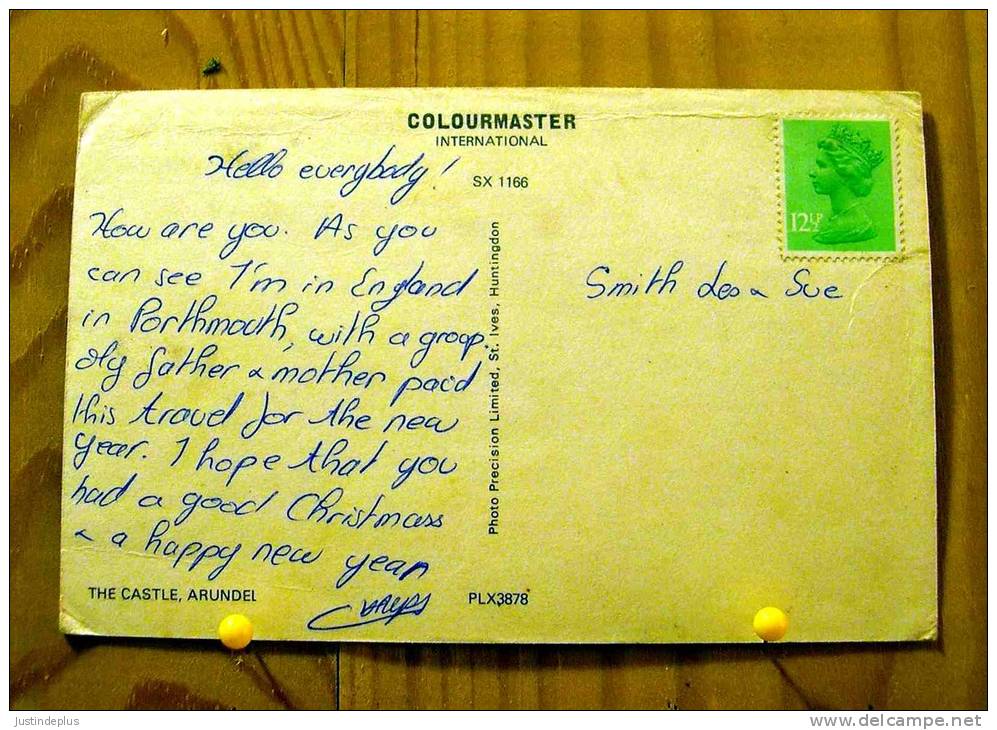 COLOURMASTER
INTERNATIONAL
SX 1166
Hello everybody!
How are you. As you
can see I'm in England
in Porthmouth, with a group.
My father & mother paid
this travel for the new
year. I hope that you
had a good Christmass
& a happy new year
THE CASTLE, ARUNDEL
PLX3878
Photo Precision Limited, St. Ives, Huntingdon
12½P
Smith Leo & Sue
justindeplus
www.delcampe.net